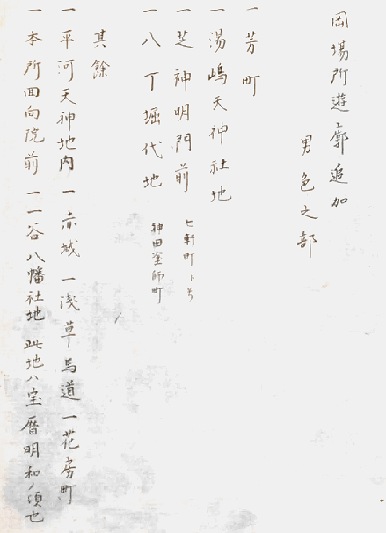 岡場所遊廓追加
男色之部
一芳町
一湯嶋天神社地
一芝神明門前
七軒町ト号
一八丁堀代地
神田塗師町
其餘
一平河天神地内一赤城一浅草馬道一花房町
一本所回向院前一一谷八幡社地此地ハ宝暦明和ノ頃也